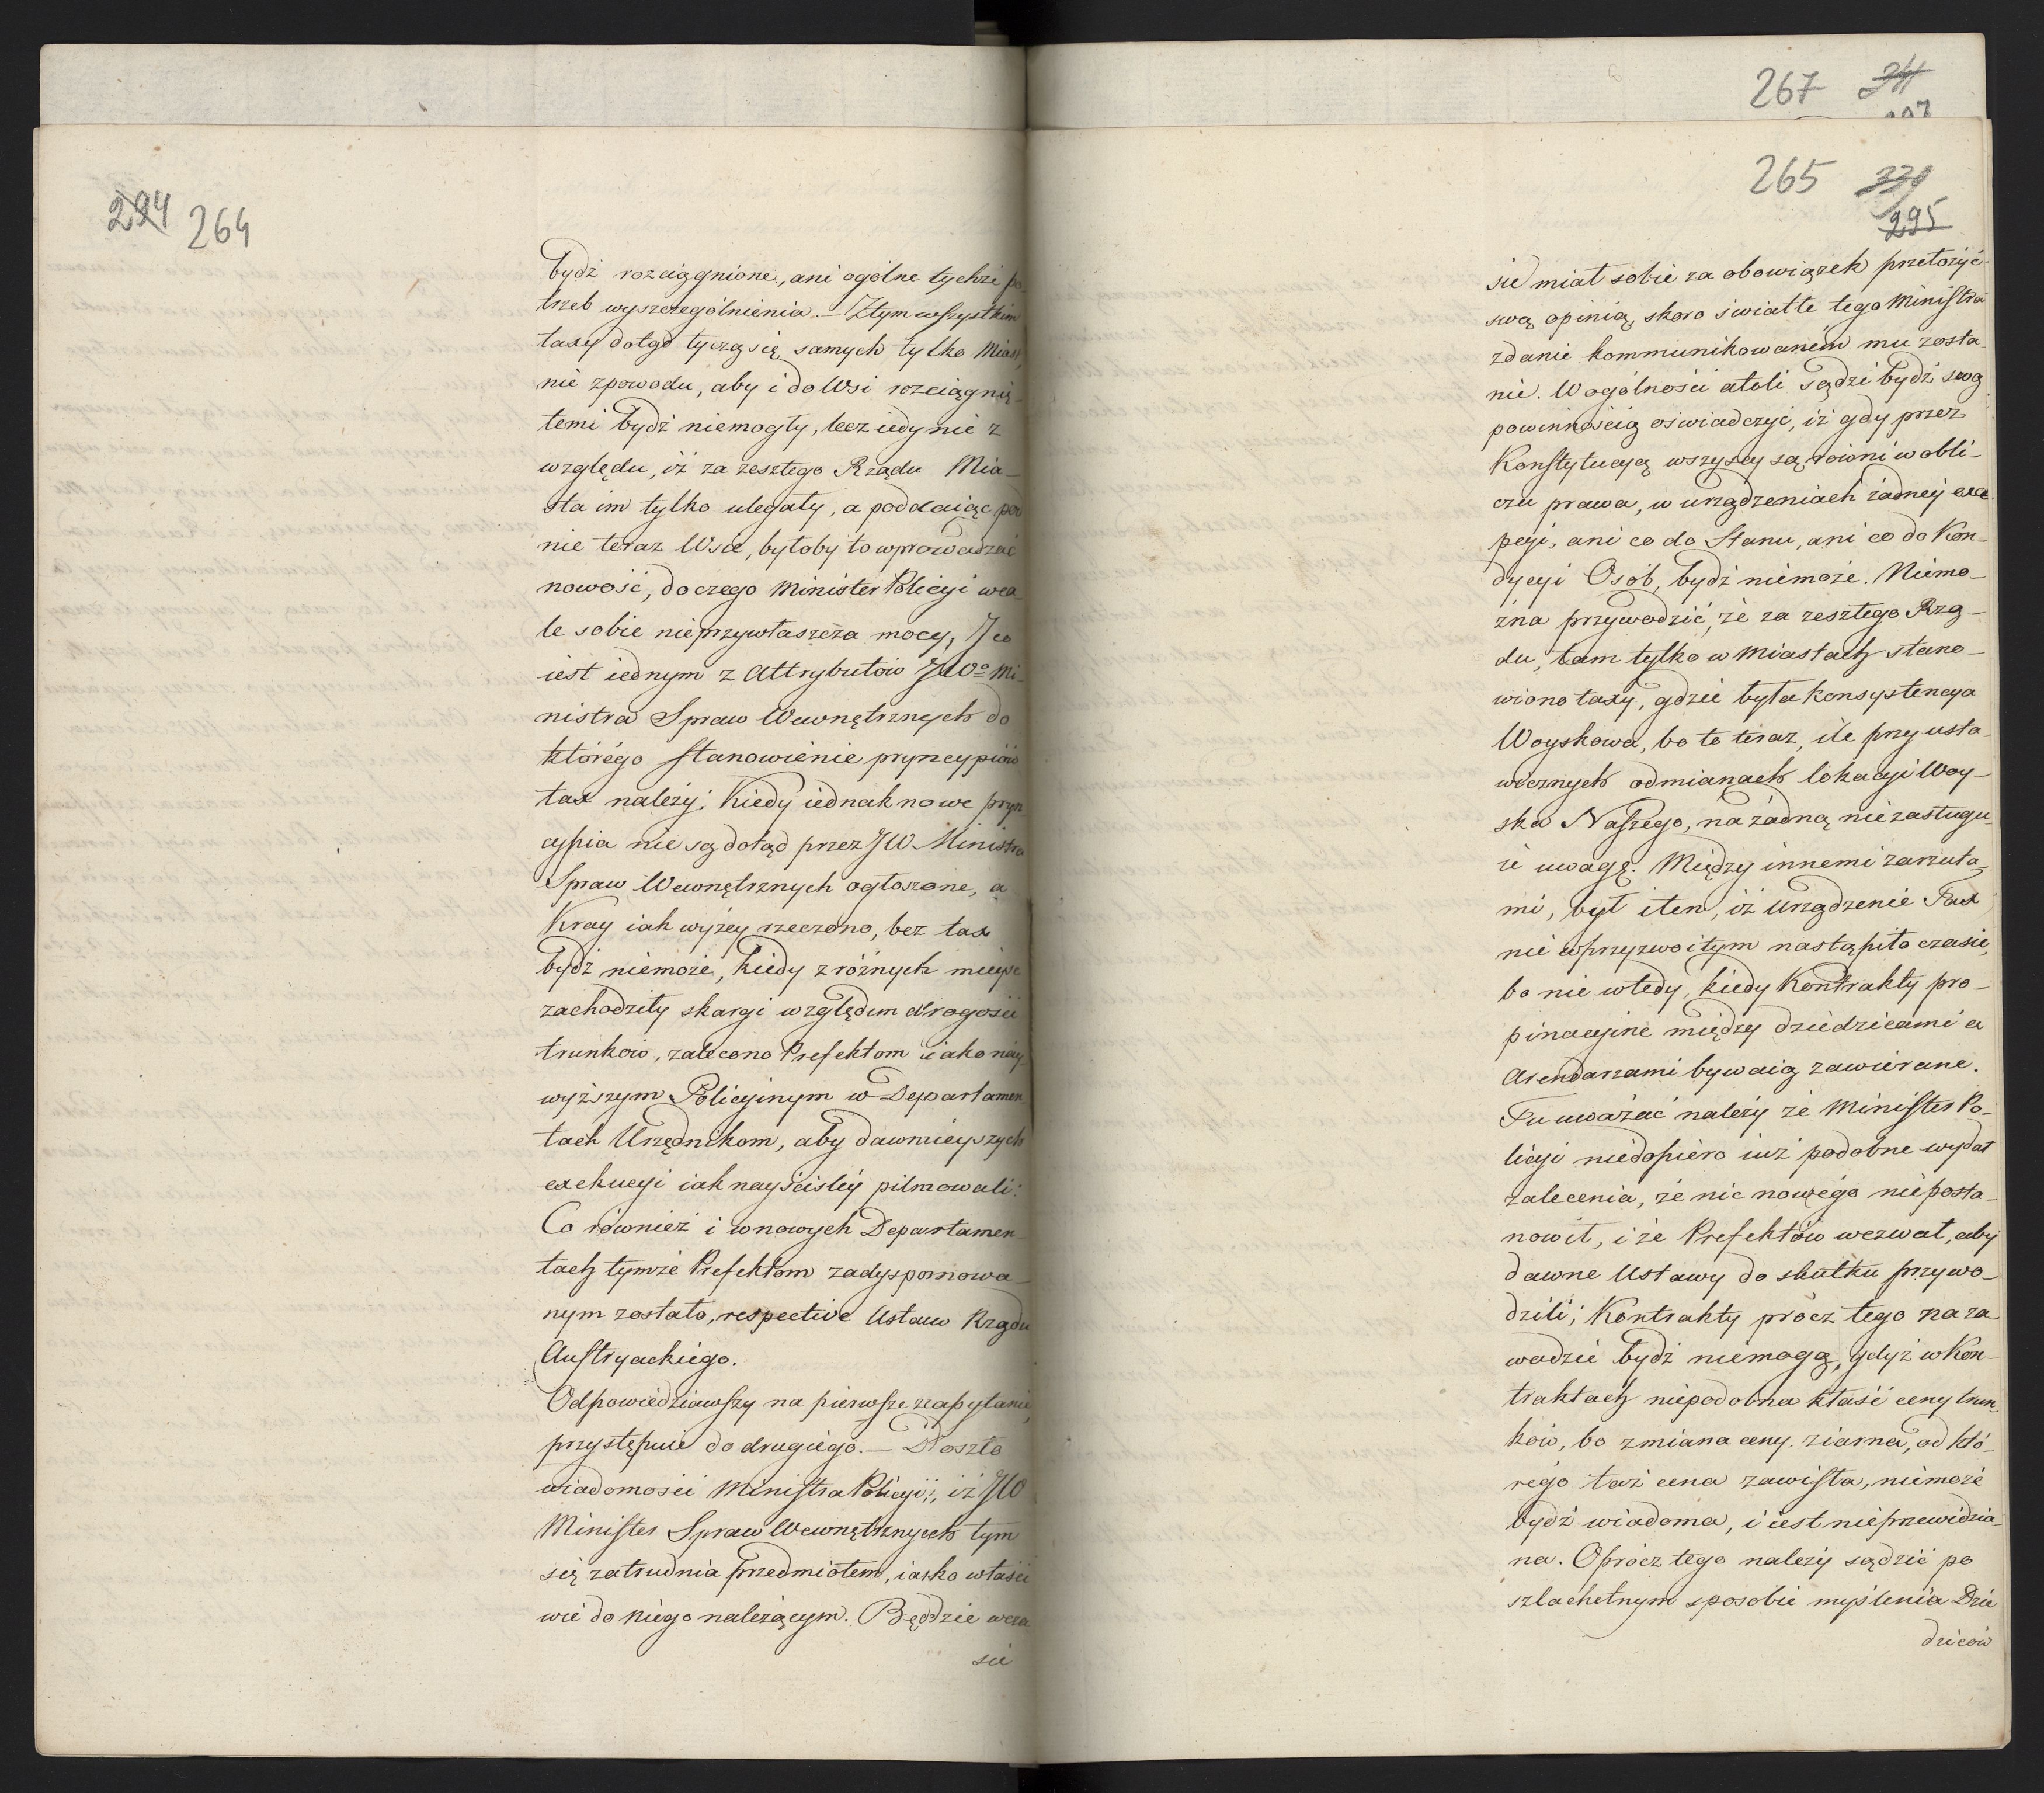 294 264
bydź rozciągnione, ani ogólne tychże po
trzeb wyszczególnienia. – Ztym wszystkim
taxy dotąd tyczą się samych tylko Miast,
nie zpowodu, aby i do Wsi rozciągnię-
temi bydź niemogły, lecz iedynie z
względu, iż za zeszłego Rządu Mia-
sta im tylko ulegały, a poddaiąc pod
nie teraz Wsie, byłoby to wprowadzać
nowość, do czego Minister Policyi wca-
le sobie nieprzywłaszcza mocy, I co
iest iednym z Attrybutów JWo Mi-
nistra Spraw Wewnętrznych do
którégo stanowienie pryncypiów
tax należy; Kiedy iednak nowe pryn
cypia nie są dotąd przez JW Ministra
Spraw Wewnętrznych ogłoszone, a
Kray iak wyżey rzeczono, bez tax
bydź niemoże, kiedy z różnych mieysc
zachodziły skargi względem drogości
trunków, zalecono Prefektom iako nay-
wyższym Policyinym w Departamen
tach Urzędnikom, aby dawnieyszych
exekucyi iak nayściśley pilnowali:
Co również i wnowych Departamen-
tach tymże Prefektom zadysponowa-
nym zostało, respective Ustaw Rządu
Austryackiego.
Odpowiedziawszy na pierwsze zapytanie,
przystępuie do drugiego. – Doszło
wiadomości Ministra Policyi, iż JW
Minister Spraw Wewnętrznych tym
się zatrudnia przedmiotem, iako właści
wie do niego należącym. Będzie wcza
sie
267
265 330
295
sie miał sobie za obowiązek przełożyć
swą opinią, skoro światłe tego Ministra
zdanie kommunikowaném mu zosta-
nie. W ogólności atoli sądzi bydź swą
powinnością oświadczyć, iż gdy przez
Konstytucyą wszyscy są równi w obli-
czu prawa, w urządzeniach żadnéy exce
pcyi, ani co do Stanu, ani co do Kon-
dycyi Osób, bydź niemoże. Niemo-
żna przywodzić, że za zeszłego Rzą-
du, tam tylko w Miastach stano-
wiono taxy, gdzie była konsystencya
Woyskowa, bo to teraz, ile przy usta-
wicznych odmianach lokacyi Woy-
ska Naszego, na żadną nie zasługu-
ie uwagę. Między innemi zarzuta-
mi, był i ten, iż Urządzenie Tax
nie wprzyzwoitym nastąpiło czasie,
bo nie wtedy, kiedy Kontrakty pro-
pinacyjne między dziedzicami a
Arendarzami bywaią zawierane.
Tu uważać należy że Minister Po-
licyi niedopiéro iuż podobne wydał
zalecenia, że nic nowégo niéposta-
nowił, i że Prefektów wezwał, aby
dawne Ustawy do skutku przywo-
dzili; Kontrakty prócz tego na za
wodzie bydź niemogą, gdyż w Kon-
traktach niepodobna kłaść ceny trun-
ków, bo zmiana ceny ziarna, od któ-
régo taż cena zawisła, niemoże
bydź wiadoma, i iest nieprzewidzia-
na. Oprócz tego należy sądzić po
szlachetnym sposobie myślenia Dzie
dziców